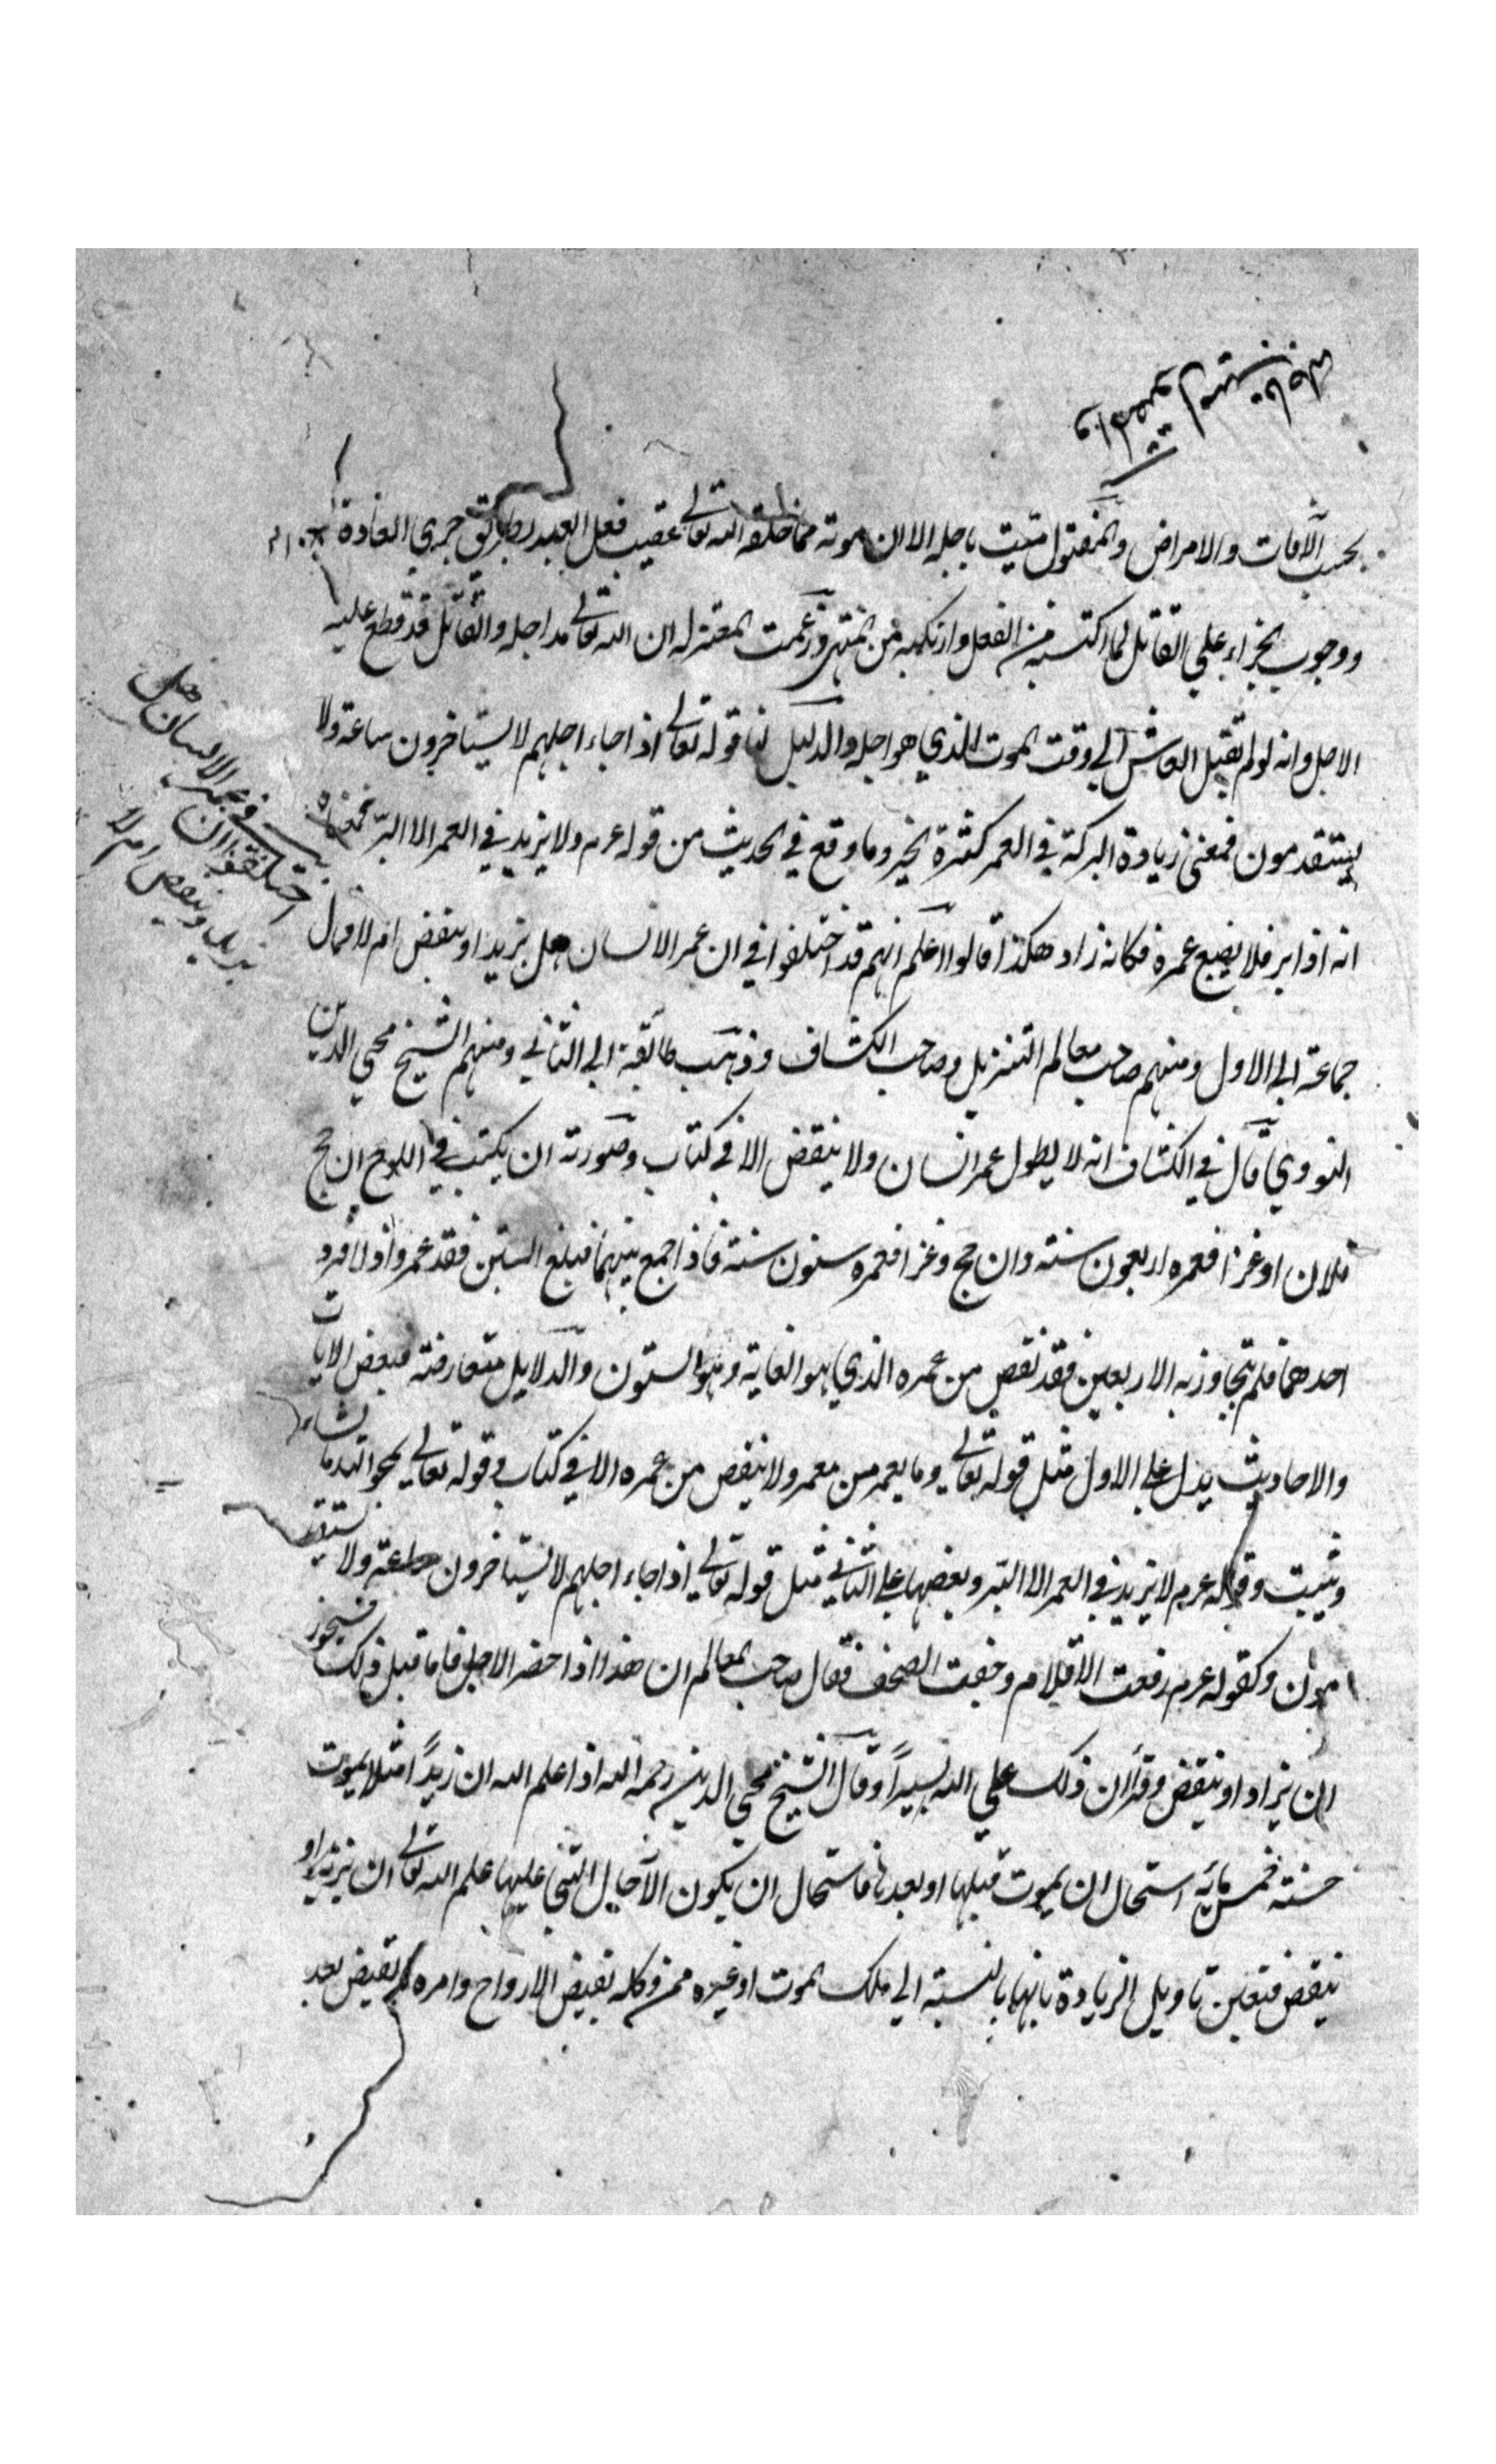 والمقتول ميت باجله
بحسب الآفات والامراض والمقتول ميت باجله الا ان موته مما خلقه الله تعالى عقيب فعل العبد بطريق جري العادة
ووجوب الجزاء على القاتل لما اكتسبه من الفعل وارتكبه من المنهي وزعمت المعتزله ان الله تعالى مد اجله والقاتل قد قطع عليه
الاجل وانه لو لم يقتل لعاش الي وقت الموت الذي هو اجله والدليل لنا قوله تعالى اذا جاء اجلهم لا يستاخرون ساعة ولا
يستقدمون فمعنى زيادة البركة في العمر كثرة الخير وما وقع في الحديث من قوله عم ولا يزيد في العمر الا البر فمعناه
انه اذا بر فلا يضيع عمره فكانه زاد هكذا قالوا اعلم انهم قد اختلفوا في ان عمر الانسان هل يزيد او ينقض ام لا فمال
اختلفوا ان في عمر الانسان هل
يزيد وينقص ام لا
جماعة الى الاول ومنهم صاحب معالم التنزيل وصاحب الكشاف وذهب طائفة الى الثاني ومنهم الشيخ محي الدين
النووي قال في الكشاف انه لا يطول عمر انسان ولا ينقض الا في كتاب وصورته ان يكتب في اللوح ان حج
فلان او غزا فعمره اربعون سنة وان حج وغزا فعمره ستون سنة فاذا جمع بينهما فبلغ الستين فقد عمر واذا افرد
احدهما فلم يتجاوز به الاربعين فقد نقص من عمره الذي هو الغاية وهو الستون والدلايل متعارضة فبعض الايات
والاحاديث يدل على الاول مثل قوله تعالى وما يعمر من معمر ولا ينقص من عمره الا في كتاب وقوله تعالى يمحو الله ما يشاء
ويثبت وقوله عم لا يزيد في العمر الا البر وبعضها على الثاني مثل قوله تعالى اذا جاء اجلهم لا يستاخرون ساعة ولا يستقد
مون وكقوله عم رفعت الاقلام وجفت الصحف فقال صاحب المعالم ان هذا اذا حضر الاجل فاما قبل ذلك فيجوز
ان يزاد او ينقض وقرأ ان ذلك علي الله يسيراً وقال الشيخ محي الدين رحمه الله اذا علم الله ان زيداً مثلا يموت
سنة خمس مائه استحال ان يموت قبلها او بعدها فاستحال ان يكون الآجال التي عليها علم الله تعالى ان يزيد او
ينقض فتعين تاويل الزيادة بانها بالنسبة الي ملك الموت او غيره ممن وكله بقبض الارواح وامره بقبض بعد